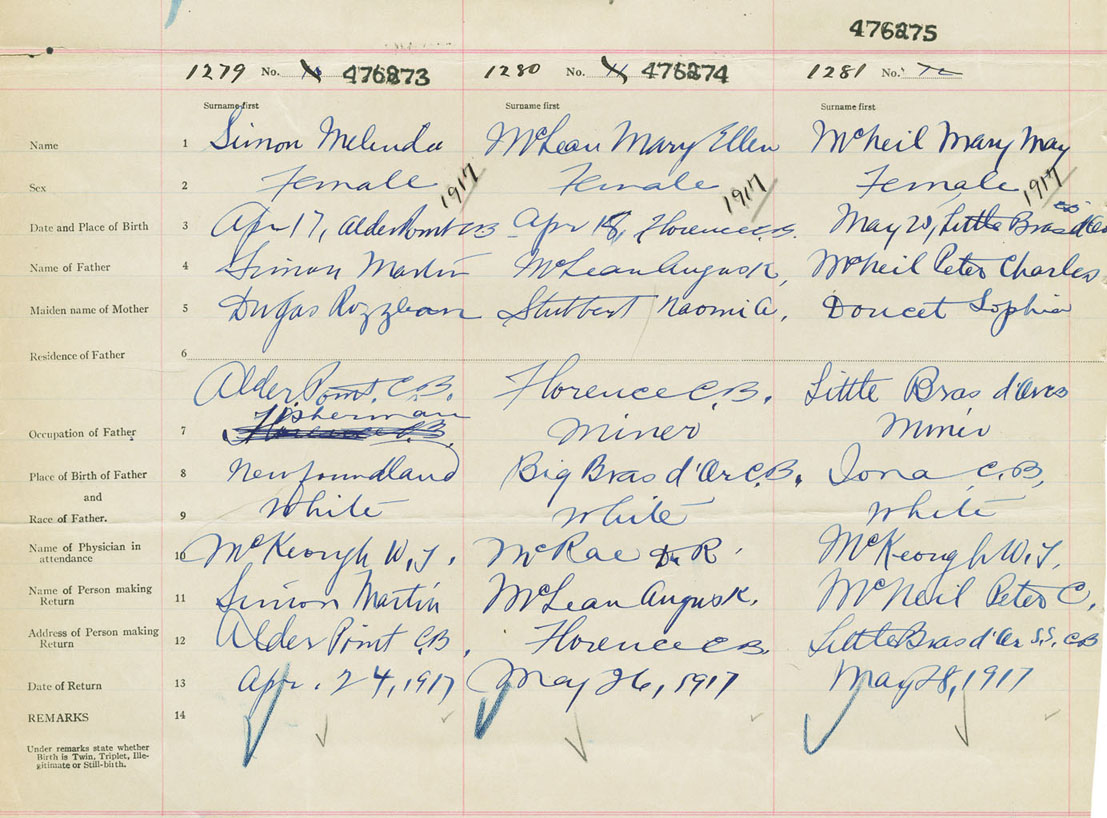 476275
1279 No. 476273 1280 No. 476274 1281 No. 72
Surname first Surname first Surname first
Name 1 Simon Melinda McLean Mary Ellen McNeil Mary May
Sex 2 Female Female Female
1917 1917 1917
Date and Place of Birth 3 Apr 17, Alder Point CB Apr 18, Florence C.B. May 20, Little Bras d'Or
Name of Father 4 Simon Martin McLean Angus K, McNeil Peter Charles
Maiden name of Mother 5 Dugas Rozzleann Stubbert Naomi A. Doucet Sophia
Residence of Father 6
Alder Point, C.B. Florence C.B. Little Bras d'Or
Fisherman
Occupation of Father 7 Florence C.B. Miner Miner
Place of Birth of Father 8 Newfoundland Big Bras d'Or C.B. Iona C.B.
and
Race of Father. 9 White White White
Name of Physician in
attendance 10 McKeough W. J. McRae Dr R. McKeough W. J.
Name of Person making
Return 11 Simon Martin McLean Angus K. McNeil Peter C.
Address of Person making
Return 12 Alder Point C.B. Florence C.B. Little Bras d'Or S.S. C.B
Date of Return 13 Apr. 24, 1917 May 26, 1917 May 28, 1917
REMARKS 14
Under remarks state whether
Birth is Twin, Triplet, Ille-
gitimate or Still-birth.